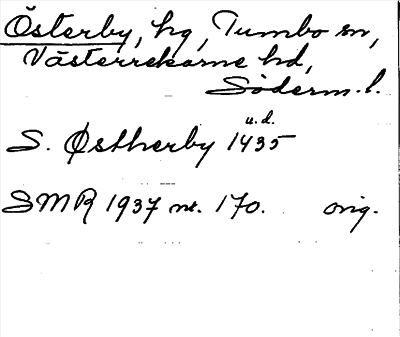 Österby, hg, Tumbo sn,
Västerrekarne hd,
Söderm. l.
u.d.
S. Østherby 1435
SMR 1937 nr. 170. orig.